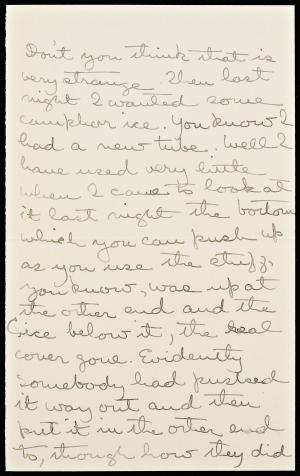 Don't you think that is
very strange. Then last
night I wanted some
camphor ice. You know I
had a new tube. Well I
have used very little
when I came to look at
it last night the bottom
which you can push up
as you use the stuff,
you know, was up at
the other end and the
ice below it, the seal
cover gone. Evidently
somebody had pushed
it way out and then
put it in the other end
to, though how they did